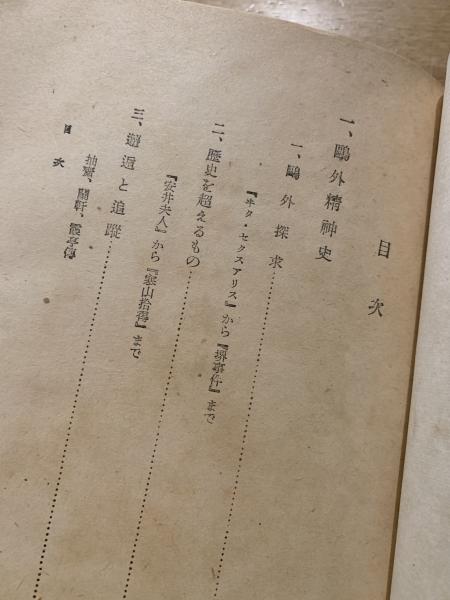 目次
一、鷗外精神史
一、鷗外探求……………
『ヰタ・セクスアリス』から『堺事件』まで
二、歴史を超えるもの……………
『安井夫人』から『寒山拾得』まで
三、邂逅と追蹤……………
抽齋、蘭軒、霞亭傳
目次